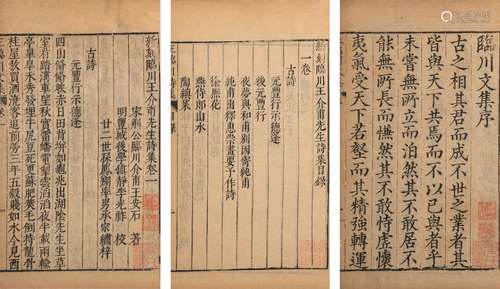 臨川文集序
古之相其君而成不世之業者其
皆與天下共焉而不以已與者乎
未嘗無所立而泊然其不敢居不
能無所長而慊然其不敢恃虛懷
夷氣受天下若壑而其精強轉運
新刻臨川王介甫先生詩集目錄
一卷
古詩
元豐行示德逢
後元豐行
夜夢與和甫別因寄純甫
純甫出釋惠崇畫要予作詩
徐熙花
燕侍郎山水
陶縝菜
新刻臨川王介甫先生詩集卷一
宋荊公臨川介甫王安石 著
明豐城後學鎮靜李光祚 校
廿二世孫鳳翔率男承宗禋梓
古詩
元豐行示德逢
四山翛翛映赤日田背坼如龜兆出湖陰先生坐草
室看踏溝車望秋實雷蟠電掣雲滔滔夜半載雨輸
亭臯旱禾秀發埋牛尻豆死更蘇肥莢毛倒持龍骨
掛屋敖買酒澆客追前勞三年五穀賤如水今見西